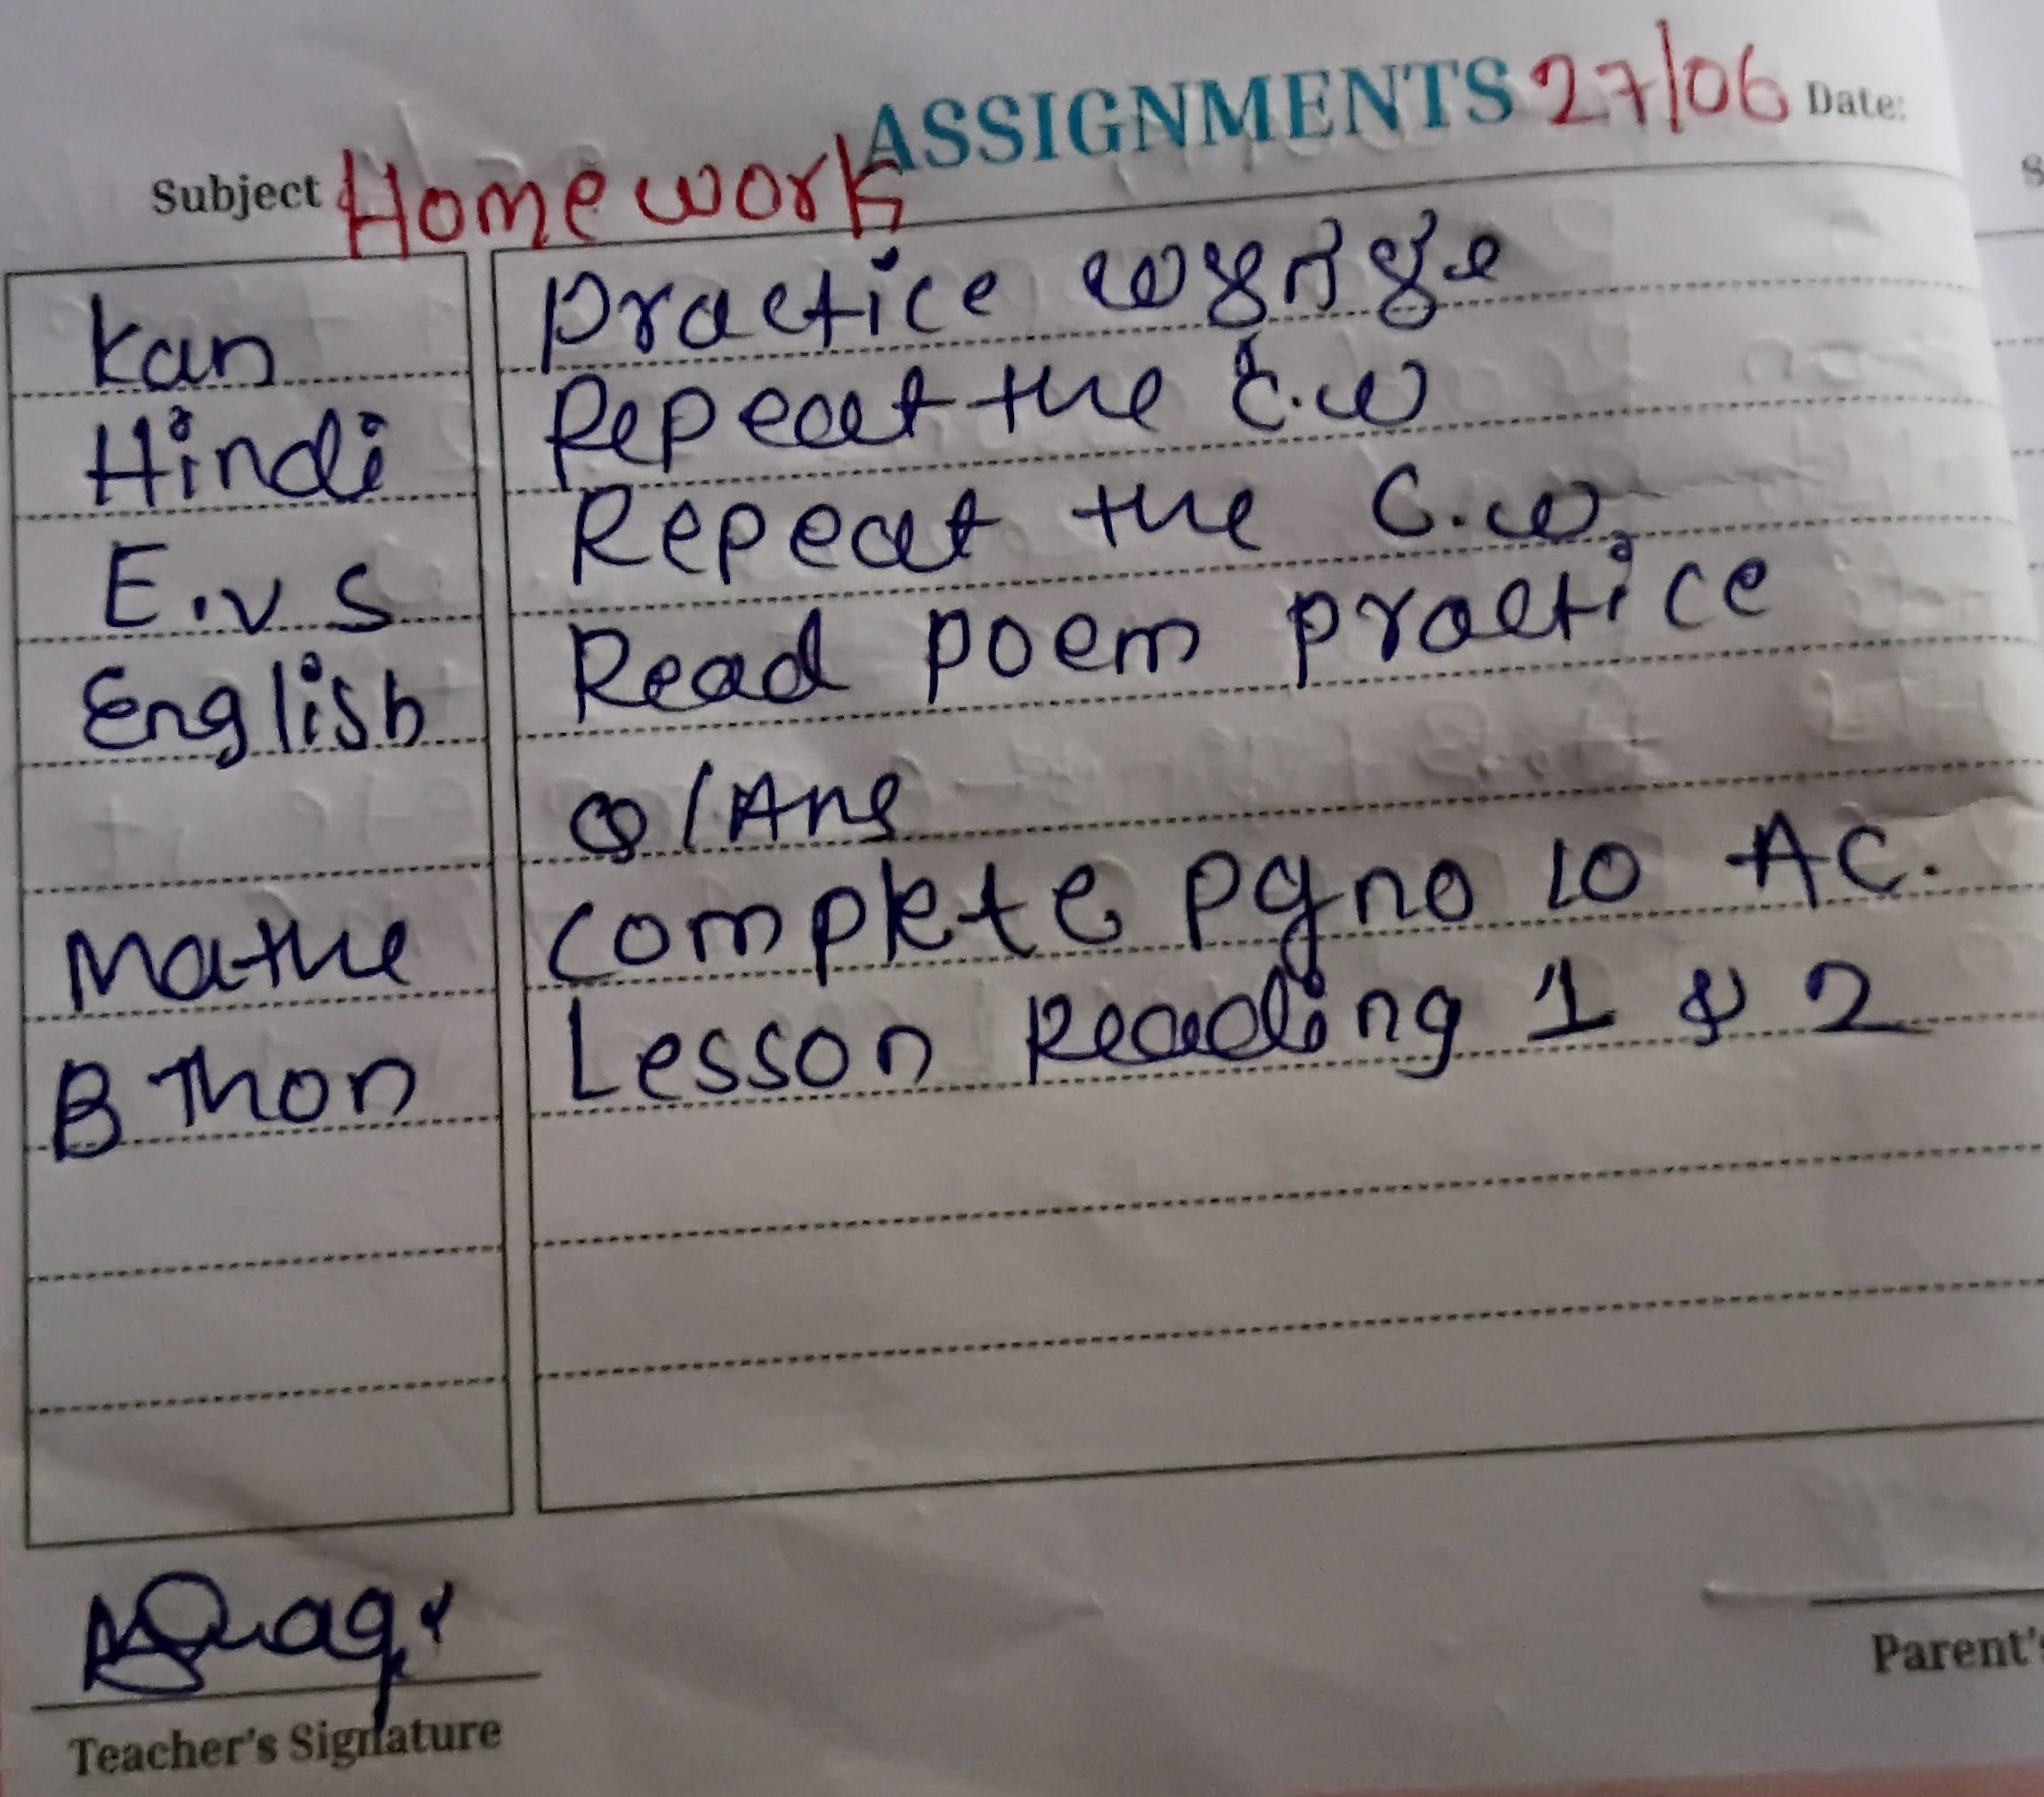 ASSIGNMENTS 27/06 Date:
Subject Homework
Kan Practice
Hindi Repeat the C.W
E.V.S Repeat the C.W
English Read poem practice
Q/Ans
Maths Complete pg no 10 AC.
B Thon Lesson Reading 1 & 2
Teacher's Signature
Parent's